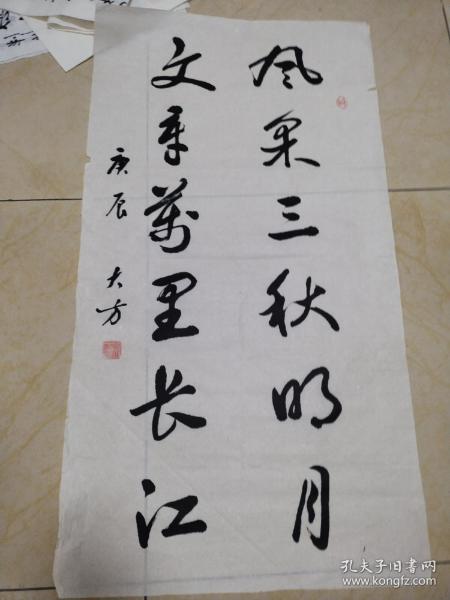 风采三秋明月
文章万里长江
庚辰 大方
孔夫子旧书网
www.kongfz.com